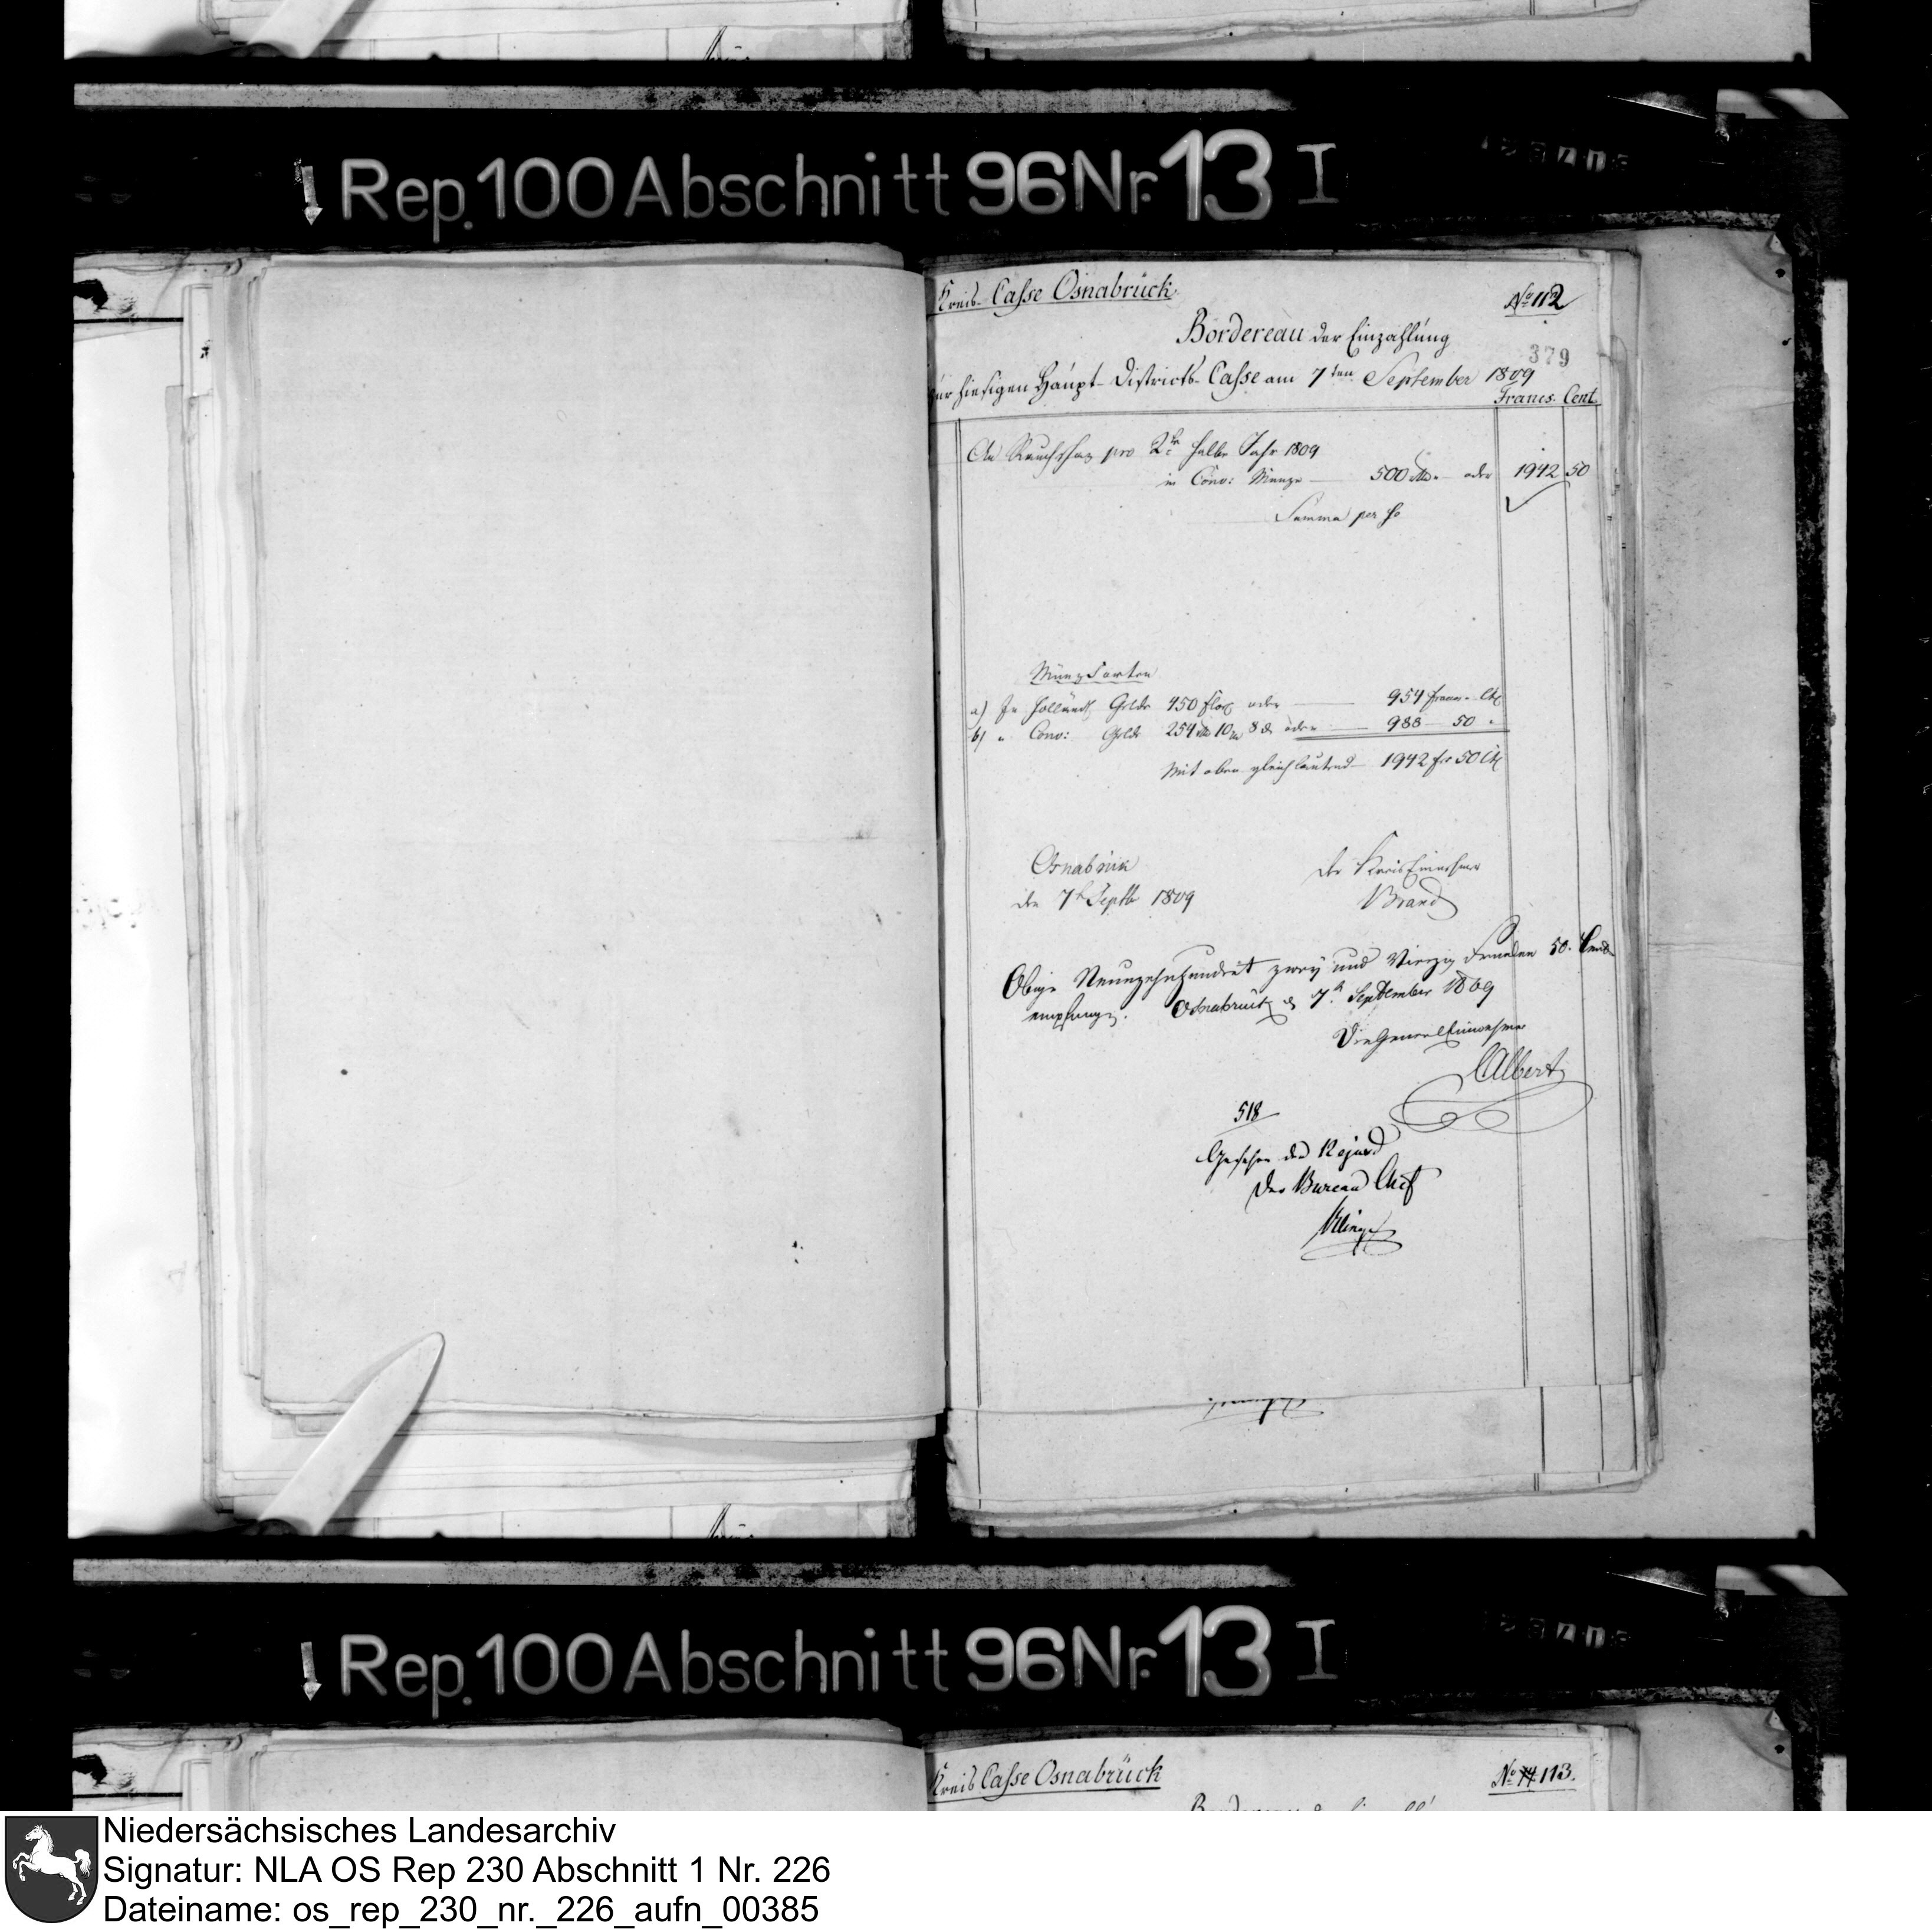 Rep. 100 Abschnitt 96 Nr. 13 I
Kreis-Casse Osnabrück
No 112
Bordereau der Einzahlung
379
zur hiesigen Haupt-Districts-Casse am 7ten September 1809
Francs. Cent.
An Rauchschatz pro 2te halbe Jahr 1809
in Conv: Münze — 500 oder 1942 50
Summa per se
Münz Sorten
a) In holländ. Gelde 450 oder — 954 Francs
b) " Conv: Gelde 254 10 8 oder — 988 — 50 "
Mit oben gleichlautend — 1942 fr 50 Ct
Osnabrück
der Kreis Einnehmer
den 7t Septbr 1809
Brand
Obige Neunzehnhundert zwey und Vierzig Franken 50. Cent
empfangen. Osnabrück d 7t September 1809
Die General Einnehmer
Albert
518
Gesehen den
Der Bureau Chef
Rep. 100 Abschnitt 96 Nr. 13 I
Kreis Casse Osnabrück
No 113.
Niedersächsisches Landesarchiv
Signatur: NLA OS Rep 230 Abschnitt 1 Nr. 226
Dateiname: os_rep_230_nr._226_aufn_00385